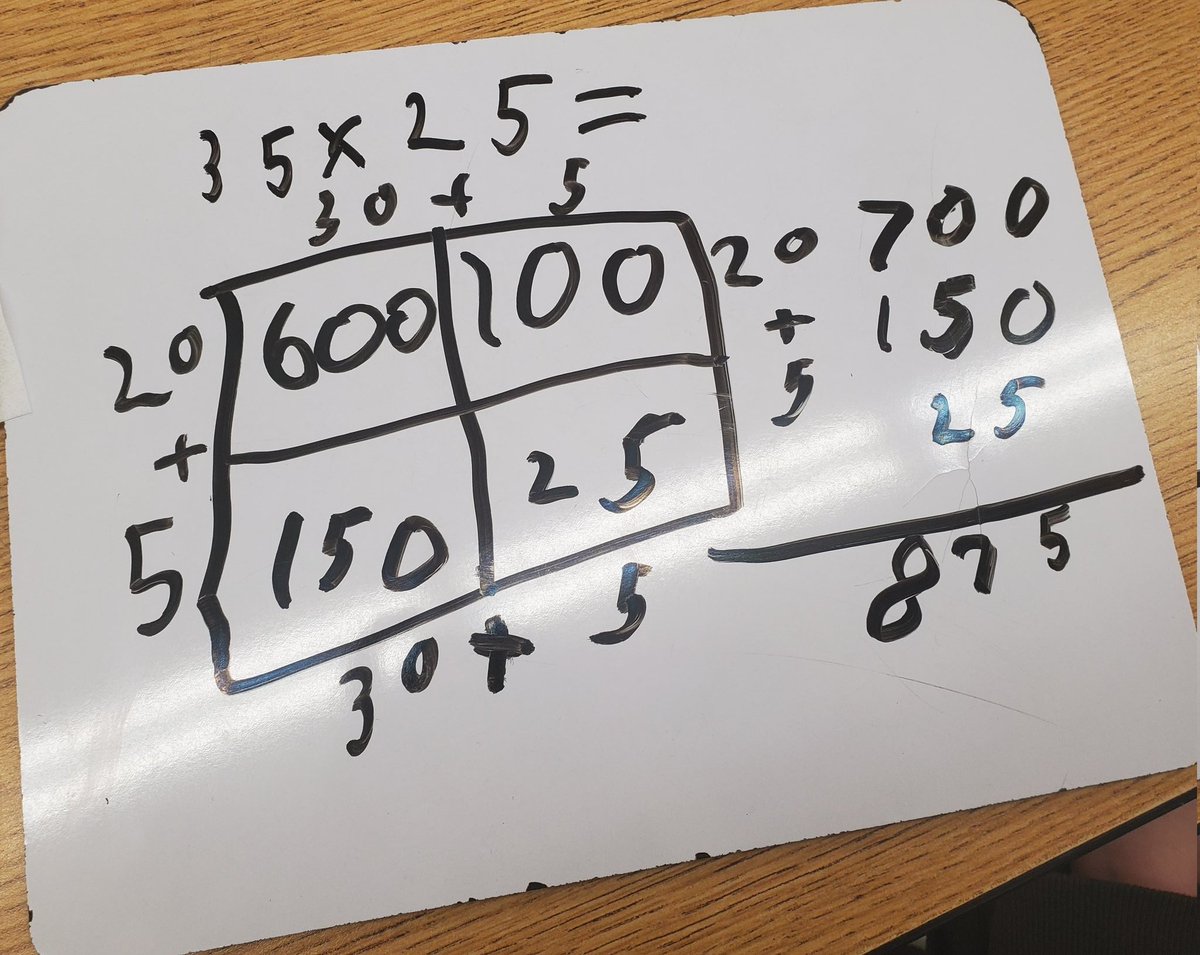 35 x 25 =
30 + 5
20 600 100 20
+ +
5 150 25 5
30 + 5
700
150
25
875